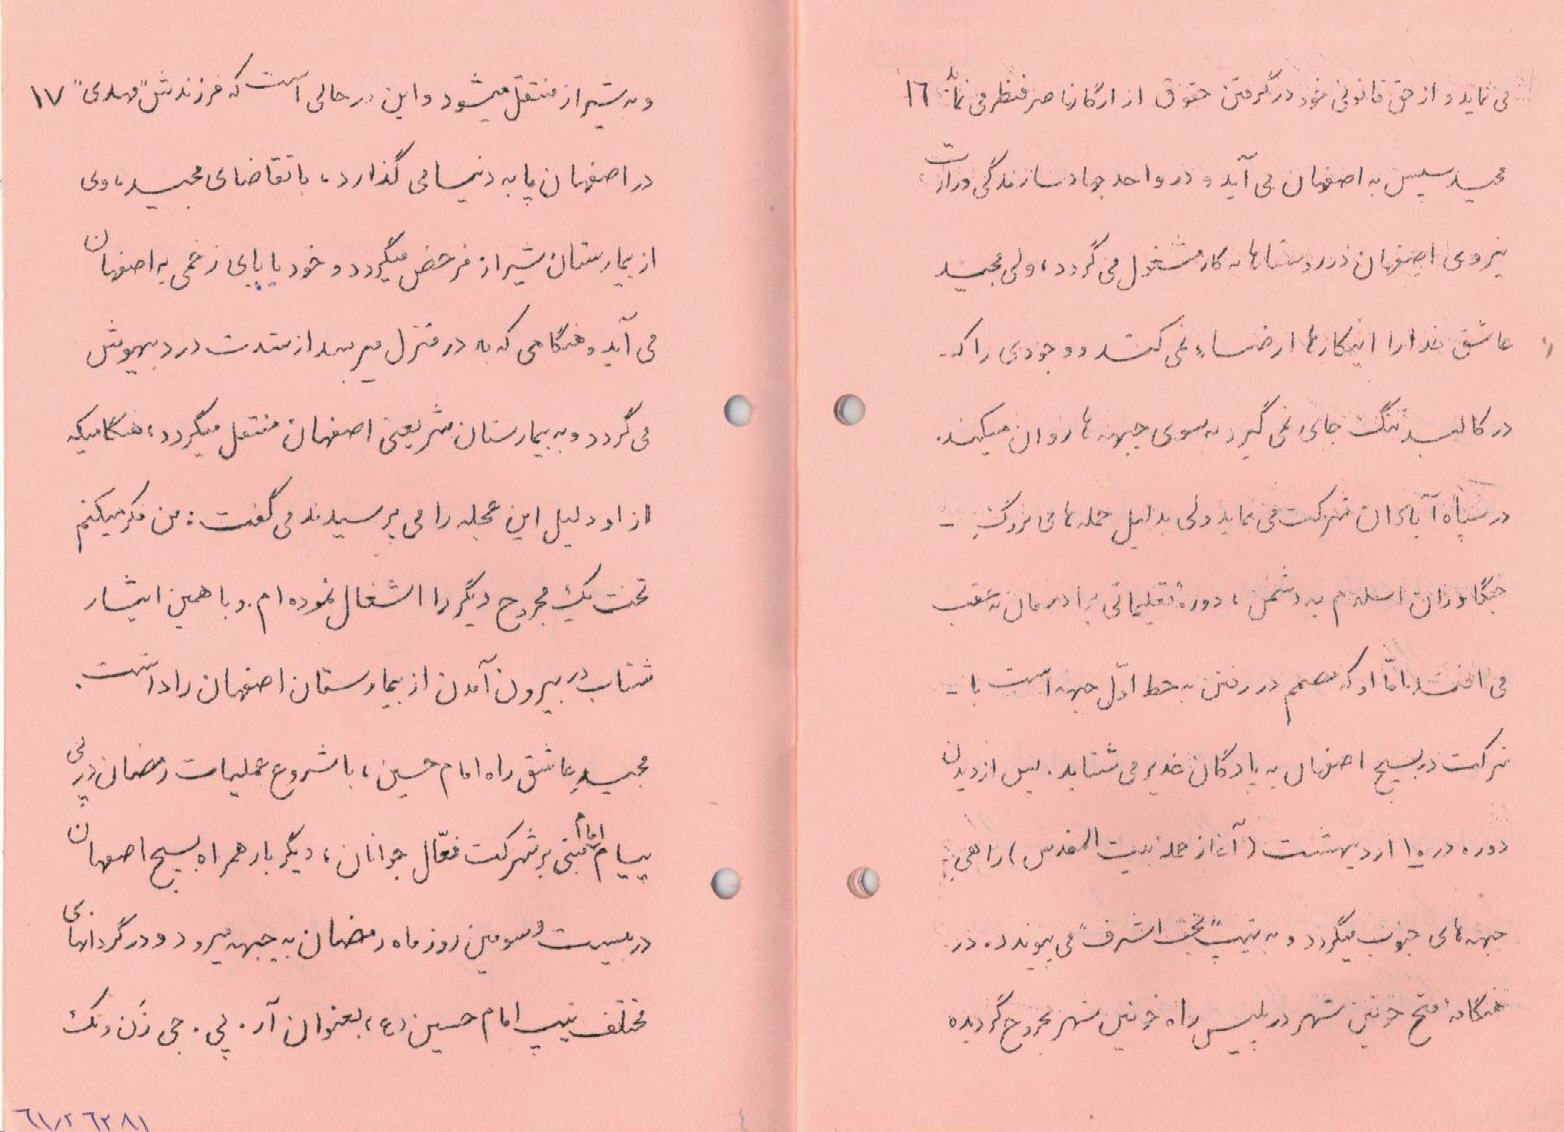 می نماید و از حق قانونی خود در گرفتن حقوق از ارگانها صرفنظر می نماید ١٦
مجید سپس به اصفهان می آید و در واحد جهاد سازندگی وزارت
نیروی اصفهان در روستاها به کار مشغول می گردد، ولی مجید
عاشق خدا را اینکارها ارضاء نمی کند و وجودی را که -
در کالبد تنگ جای نمی گیرد به سوی جبهه ها روان میکند.
در سپاه آبادان شرکت می نماید ولی بدلیل حمله های بزرگ -
جنگاوران اسلام به دشمن، دوره تعلیماتی برادرمان به عقب
می افتد. امّا او که مصمم در رفتن به خط اوّل جبهه است با -
شرکت در بسیج اصفهان به پادگان غدیر می شتابد. پس از دیدن
دوره در ١٠ اردیبهشت (آغاز حمله بیت المقدس) راهی
جبهه های جنوب میگردد و به تیپ "نجف اشرف" می پیوندد. در
هنگامه فتح خونین شهر در پلیس راه خونین شهر مجروح گردیده
و به شیراز منتقل میشود و این در حالی است که فرزندش "مهدی" ١٧
در اصفهان پا به دنیا می گذارد، با تقاضای مجید، وی
از بیمارستان شیراز مرخص میگردد و خود با پای زخمی به اصفهان
می آید و هنگامی که به در منزل میرسد از شدت درد بیهوش
می گردد و به بیمارستان شریعتی اصفهان منتقل میگردد، هنگامیکه
از او دلیل این عجله را می پرسیدند می گفت: من فکر میکنم
تخت یک مجروح دیگر را اشغال نموده ام. و با همین ایثار
شتاب در بیرون آمدن از بیمارستان اصفهان را داشت.
مجید عاشق راه امام حسین، با شروع عملیات رمضان در پی
پیام امام مبنی بر شرکت فعّال جوانان، دیگر بار همراه بسیج اصفهان
در بیست و سومین روز ماه رمضان به جبهه میرود و در گردانهای
مختلف تیپ امام حسین (ع)، بعنوان آر. پی. جی زن و تک
٦١/٢٦٢٨١